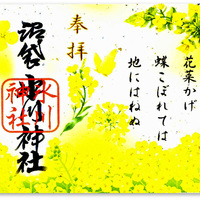 花菜かげ
蝶こぼれては
地にはねぬ
奉拝
沼袋氷川神社
氷川
神社